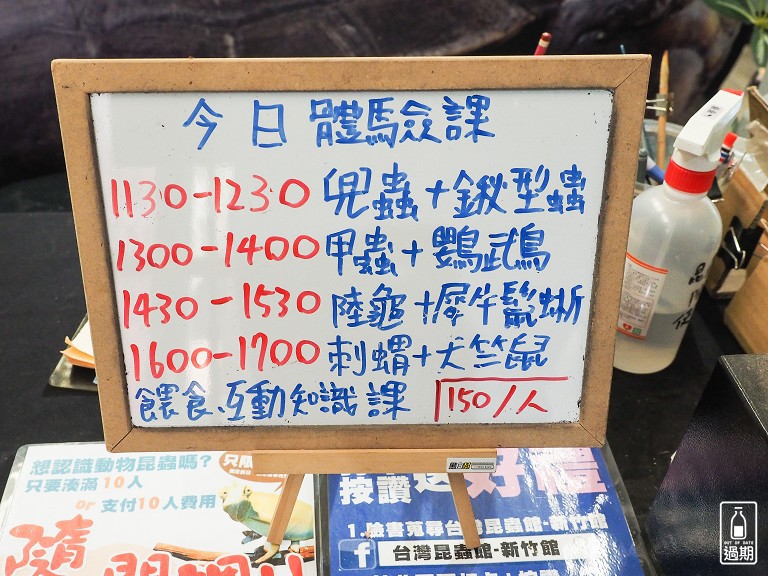 今日體驗課
1130-1230 兜蟲+鍬型蟲
1300-1400 甲蟲+鸚鵡
1430-1530 陸龜+犀牛鬣蜥
1600-1700 刺蝟+天竺鼠
餵食互動知識課 150/人
想認識動物昆蟲嗎?
只限
只要湊滿10人
or 支付10人費用
隨
好禮
按讚送
1.臉書蒐尋台灣昆蟲館-新竹館
f 台灣昆蟲館-新竹館
OUT OF DATE
過期